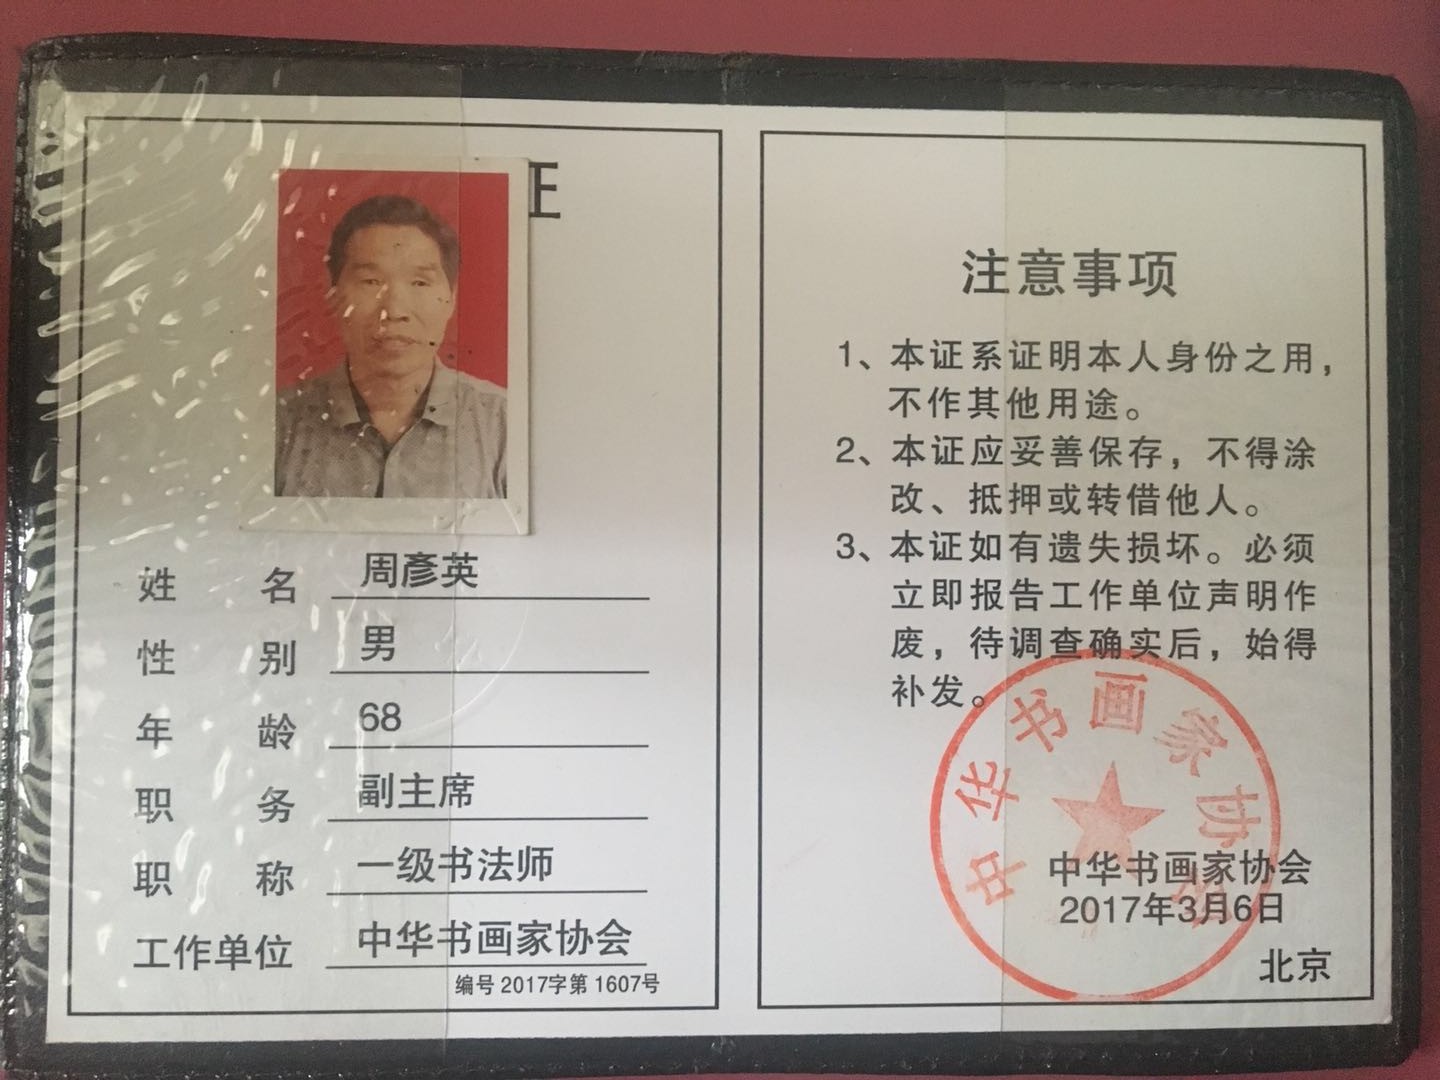 证
姓名 周彦英
性别 男
年龄 68
职务 副主席
职称 一级书法师
工作单位 中华书画家协会
编号 2017字第 1607号
注意事项
1、本证系证明本人身份之用，
不作其他用途。
2、本证应妥善保存，不得涂
改、抵押或转借他人。
3、本证如有遗失损坏。必须
立即报告工作单位声明作
废，待调查确实后，始得
补发。
中华书画家协会
中华书画家协会
2017年3月6日
北京